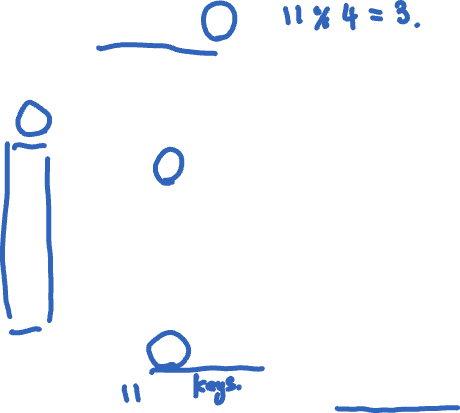 11 % 4 = 3.
11 keys.